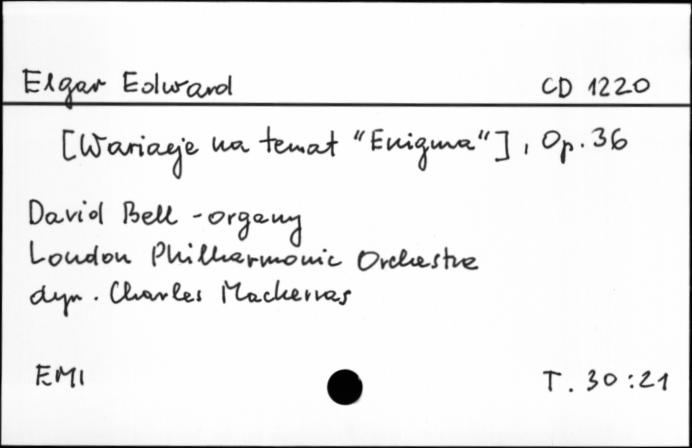 Elgar Edward CD 1220
[Wariacje na temat "Enigma"], Op. 36
David Bell - organy
London Philharmonic Orchestra
dyr. Charles Mackerras
EMI T. 30:21